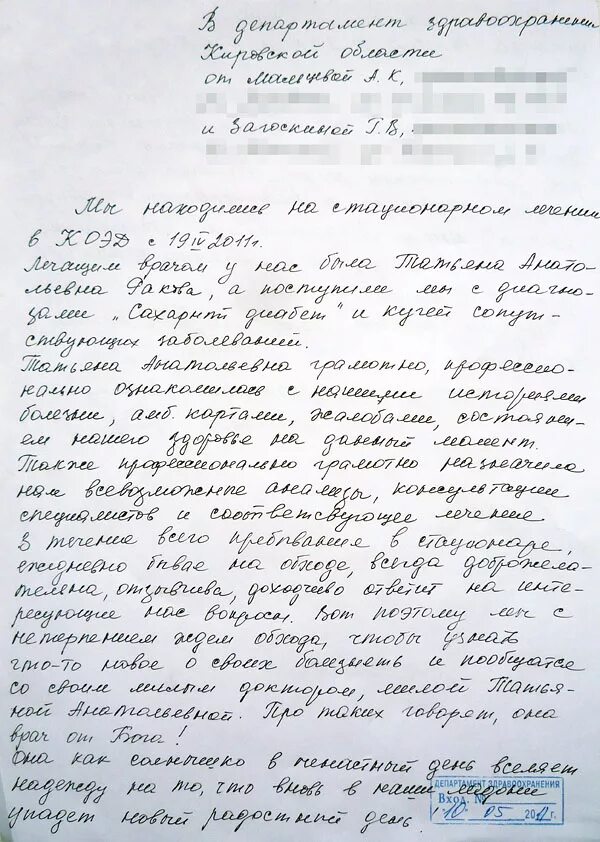 В департамент здравоохранения
Кировской области
от Мальцевой А.К,
и Загоскиной Г.В,
Мы находились на стационарном лечении
в КОЭД с 19 IV 2011г.
Лечащим врачом у нас была Татьяна Анато-
льевна Ракова, а поступили мы с диагно-
зами „Сахарный диабет" и кучей сопут-
ствующих заболеваний.
Татьяна Анатольевна грамотно, професси-
нально ознакомилась с нашими историями
болезни, амб. картами, жалобами, состояни-
ем нашего здоровье на данный момент.
Также профессионально грамотно назначила
нам всевозможные анализы, консультации
специалистов и соответсвующее лечение
В течение всего пребывания в стационаре,
ежедневно бывае на обходе, всегда доброжела-
телена, отзывчива, доходчиво ответит на инте-
ресующие нас вопросы. Вот поэтому мы с
нетерпением ждем обхода, чтобы узнать
что-то новое о своих болезнеть и пообщатся
со своим милым доктором, милой Татья-
ной Анатольевной. Про таких говорят, она
врач от Бога!
Она как солнышко в ненастный день вселяет
надежду на то, что вновь в наши ладони
упадет новый радостный день.
ДЕПАРТАМЕНТ ЗДРАВООХРАНЕНИЯ
Вход. №
05 201 г.